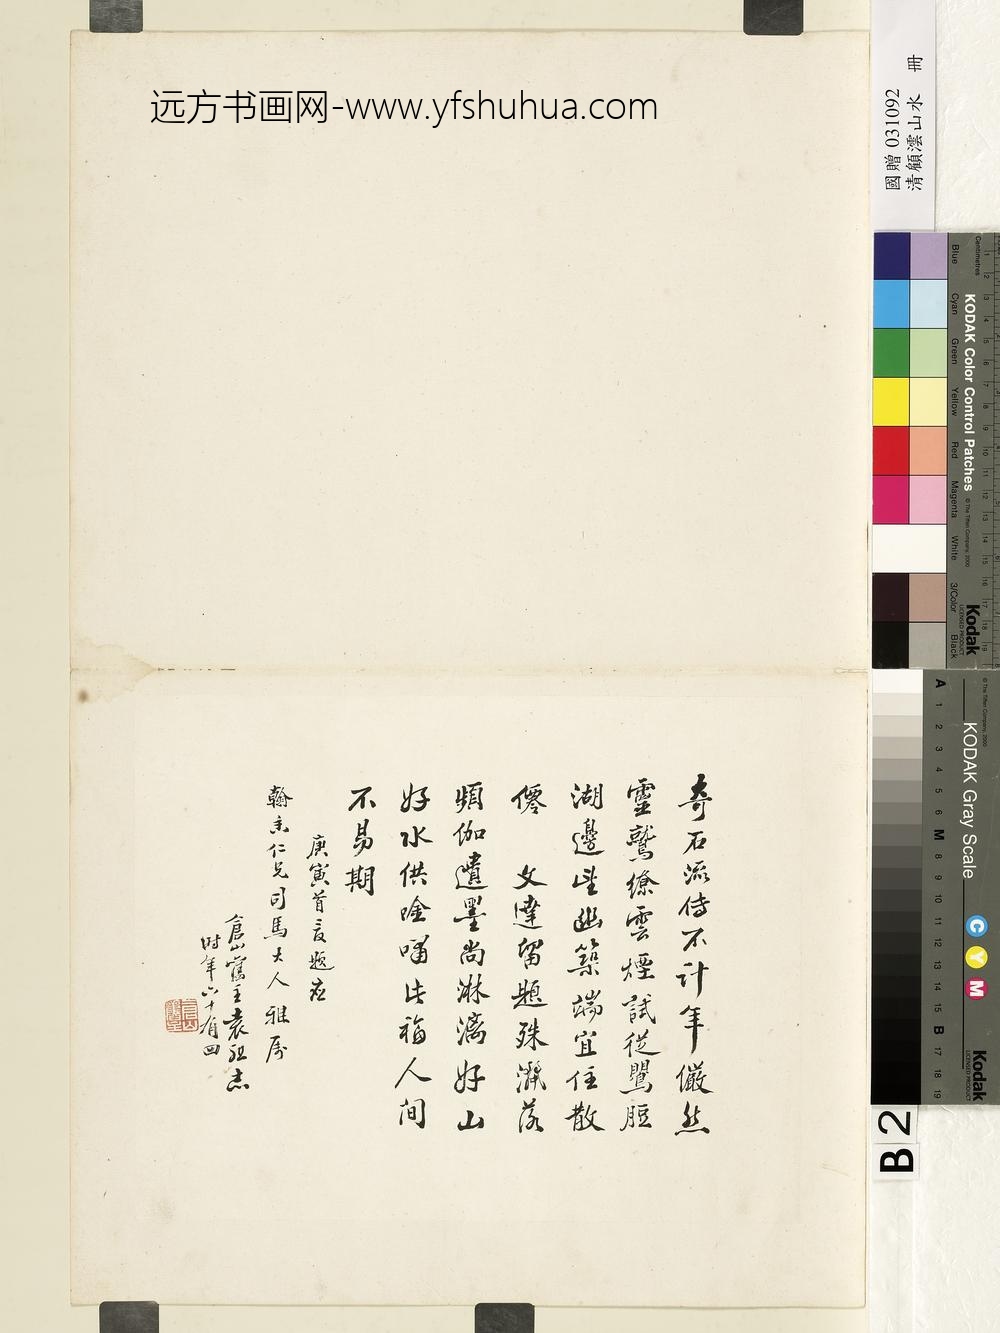 远方书画网-www.yfshuhua.com
國贈 031092
清顧澐山水 冊
奇石流侍不計年儼然
靈鷲繚雲煙試從鷖脰
湖邊望幽築端宜住散
僊 文達留題殊灑落
頻伽遺墨尚淋漓好山
好水供吟嘯此福人間
不易期
庚寅首夏題應
翰香仁兄司馬大人 雅屬
倉山舊主袁祖志
時年六十有四
Centimetres
Blue
Cyan
Green
Yellow
Red
Magenta
White
3/Color
Black
KODAK Color Control Patches
© The Tiffen Company, 2000
Kodak
LICENSED PRODUCT
KODAK Gray Scale
© The Tiffen Company, 2000
A 1 2 3 4 5 6 M 8 9 10 11 12 13 14 15 B 17 18 19
C
Y
M
Kodak
LICENSED PRODUCT
B 2